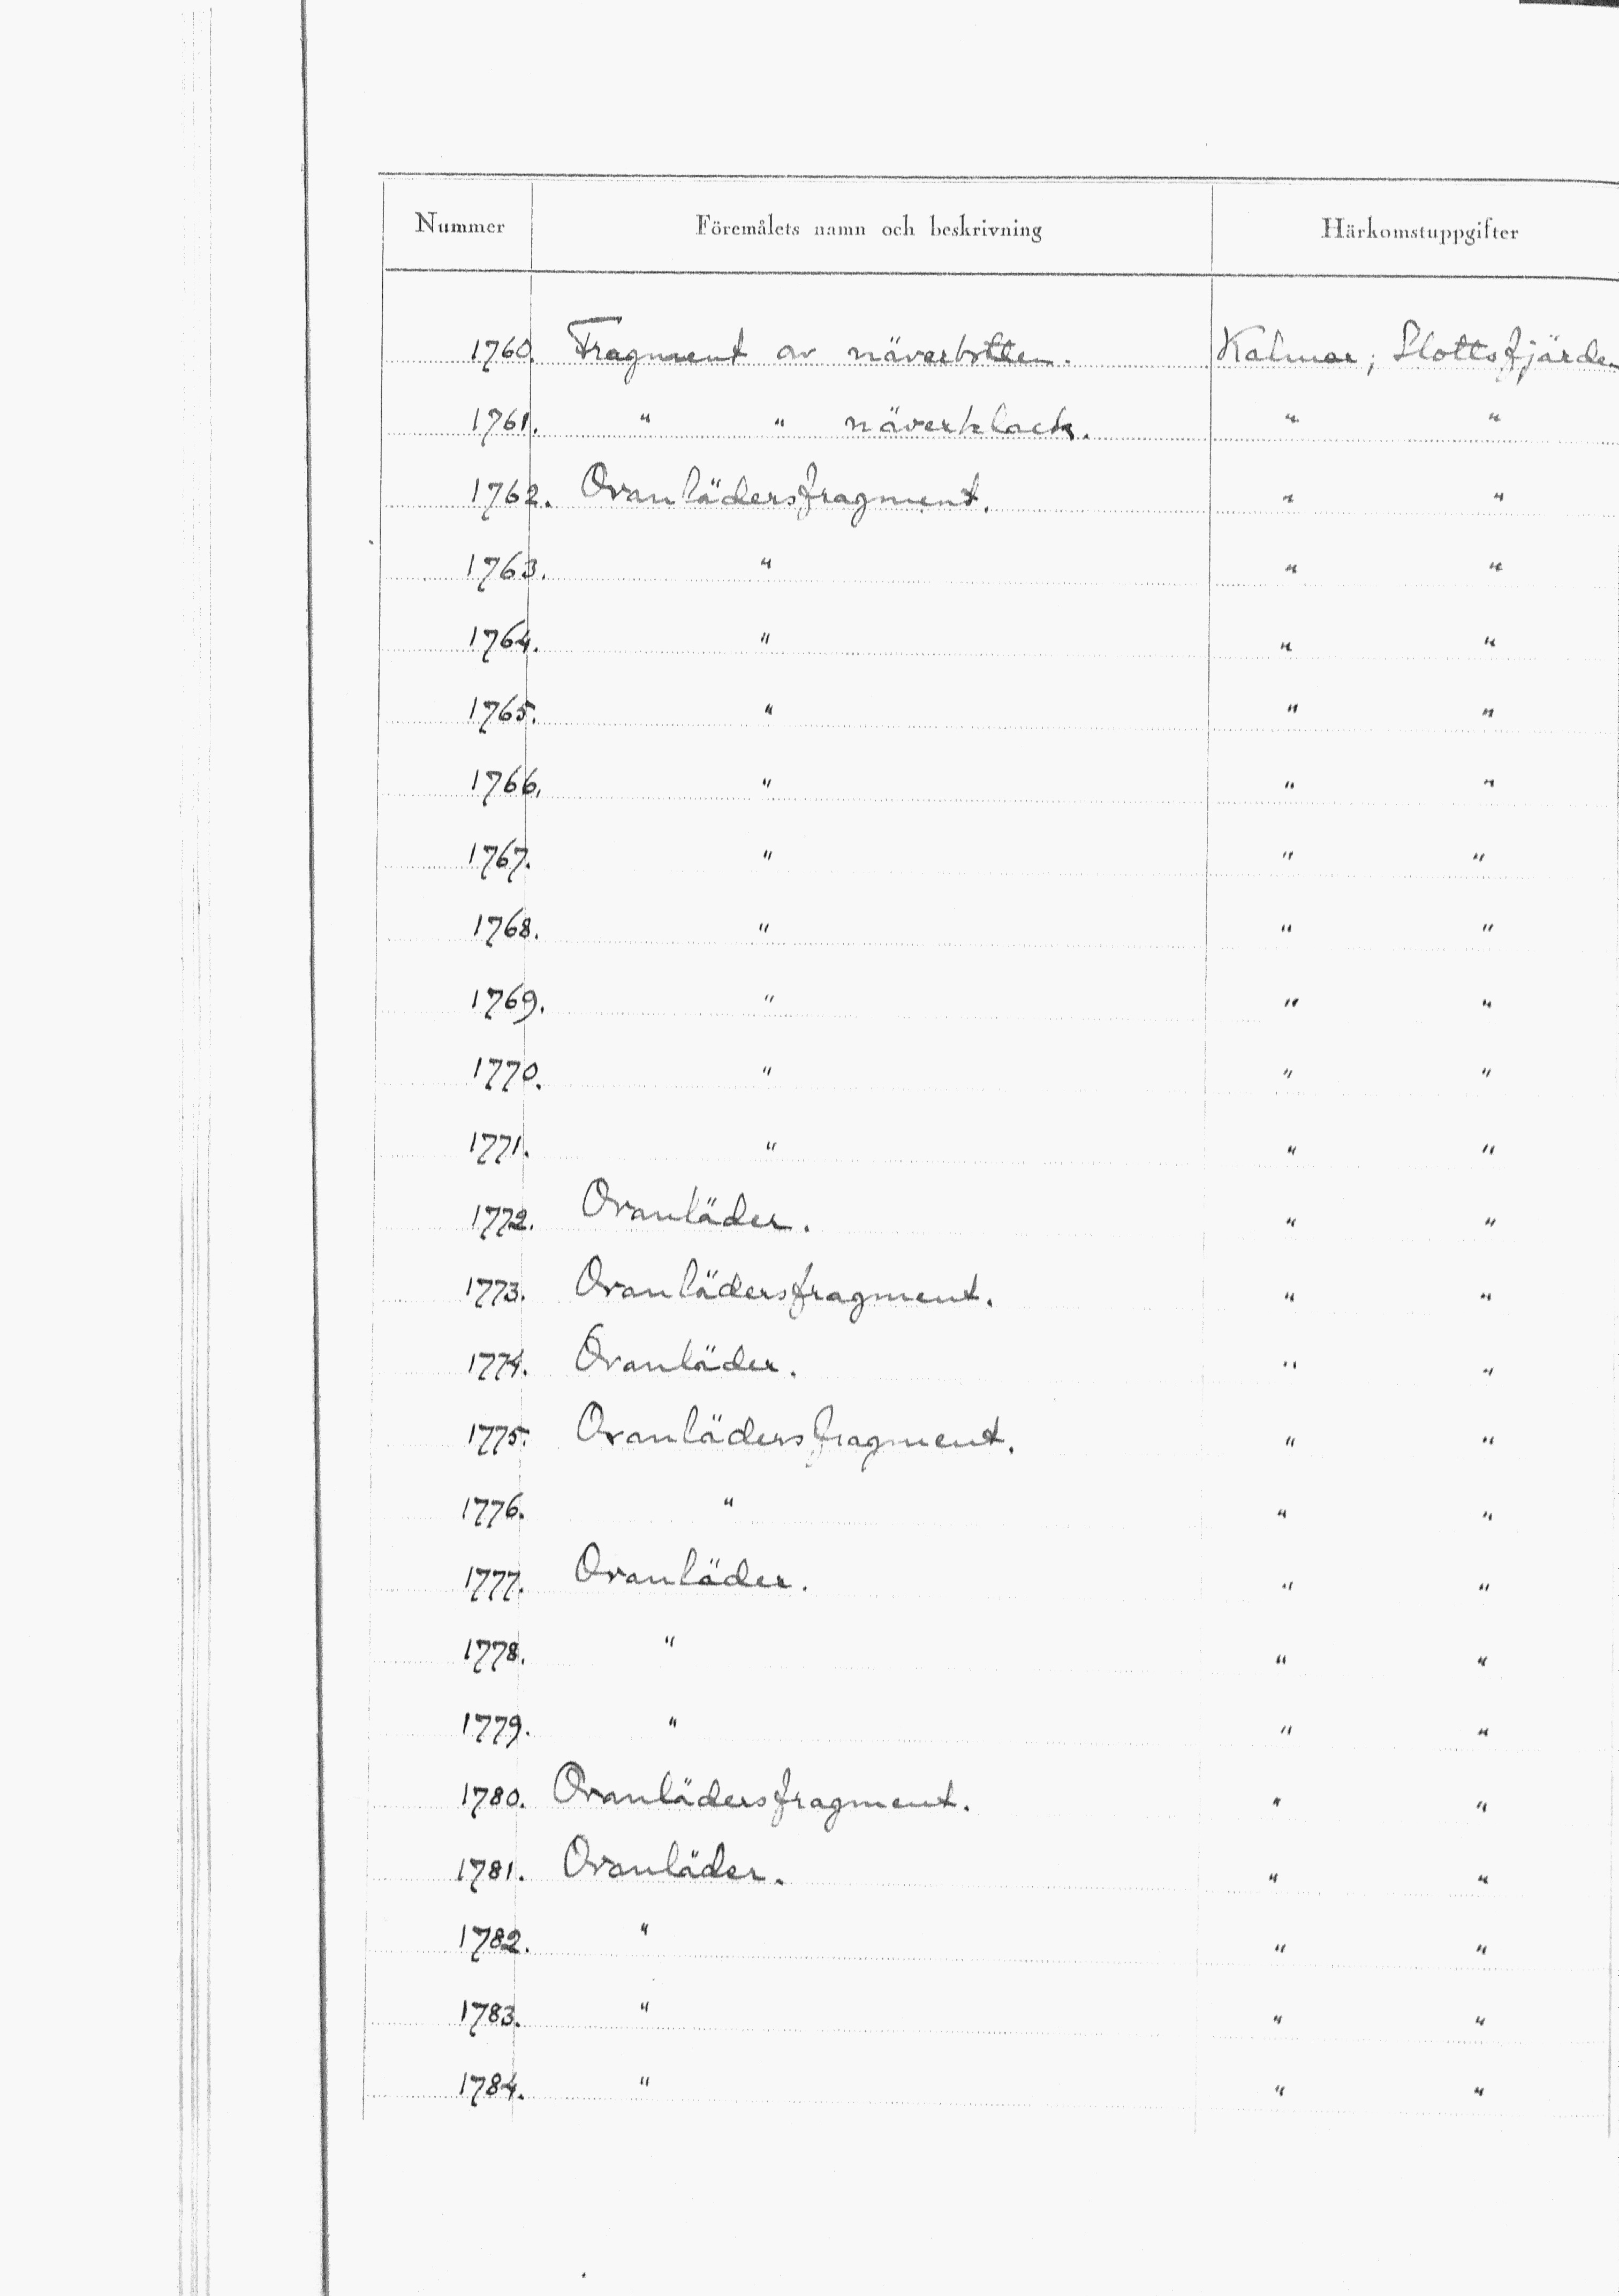 Nummer Föremålets namn och beskrivning Härkomstuppgifter
1760. Fragment av näverbotten. Kalmar, Slottsfjärden
1761. " " näverklack. " "
1762. Ovanlädersfragment. " "
1763. " " "
1764. " " "
1765. " " "
1766. " " "
1767. " " "
1768. " " "
1769. " " "
1770. " " "
1771. " " "
1772. Ovanläder. " "
1773. Ovanlädersfragment. " "
1774. Ovanläder. " "
1775. Ovanlädersfragment. " "
1776. " " "
1777. Ovanläder. " "
1778. " " "
1779. " " "
1780. Ovanlädersfragment. " "
1781. Ovanläder. " "
1782. " " "
1783. " " "
1784. " " "